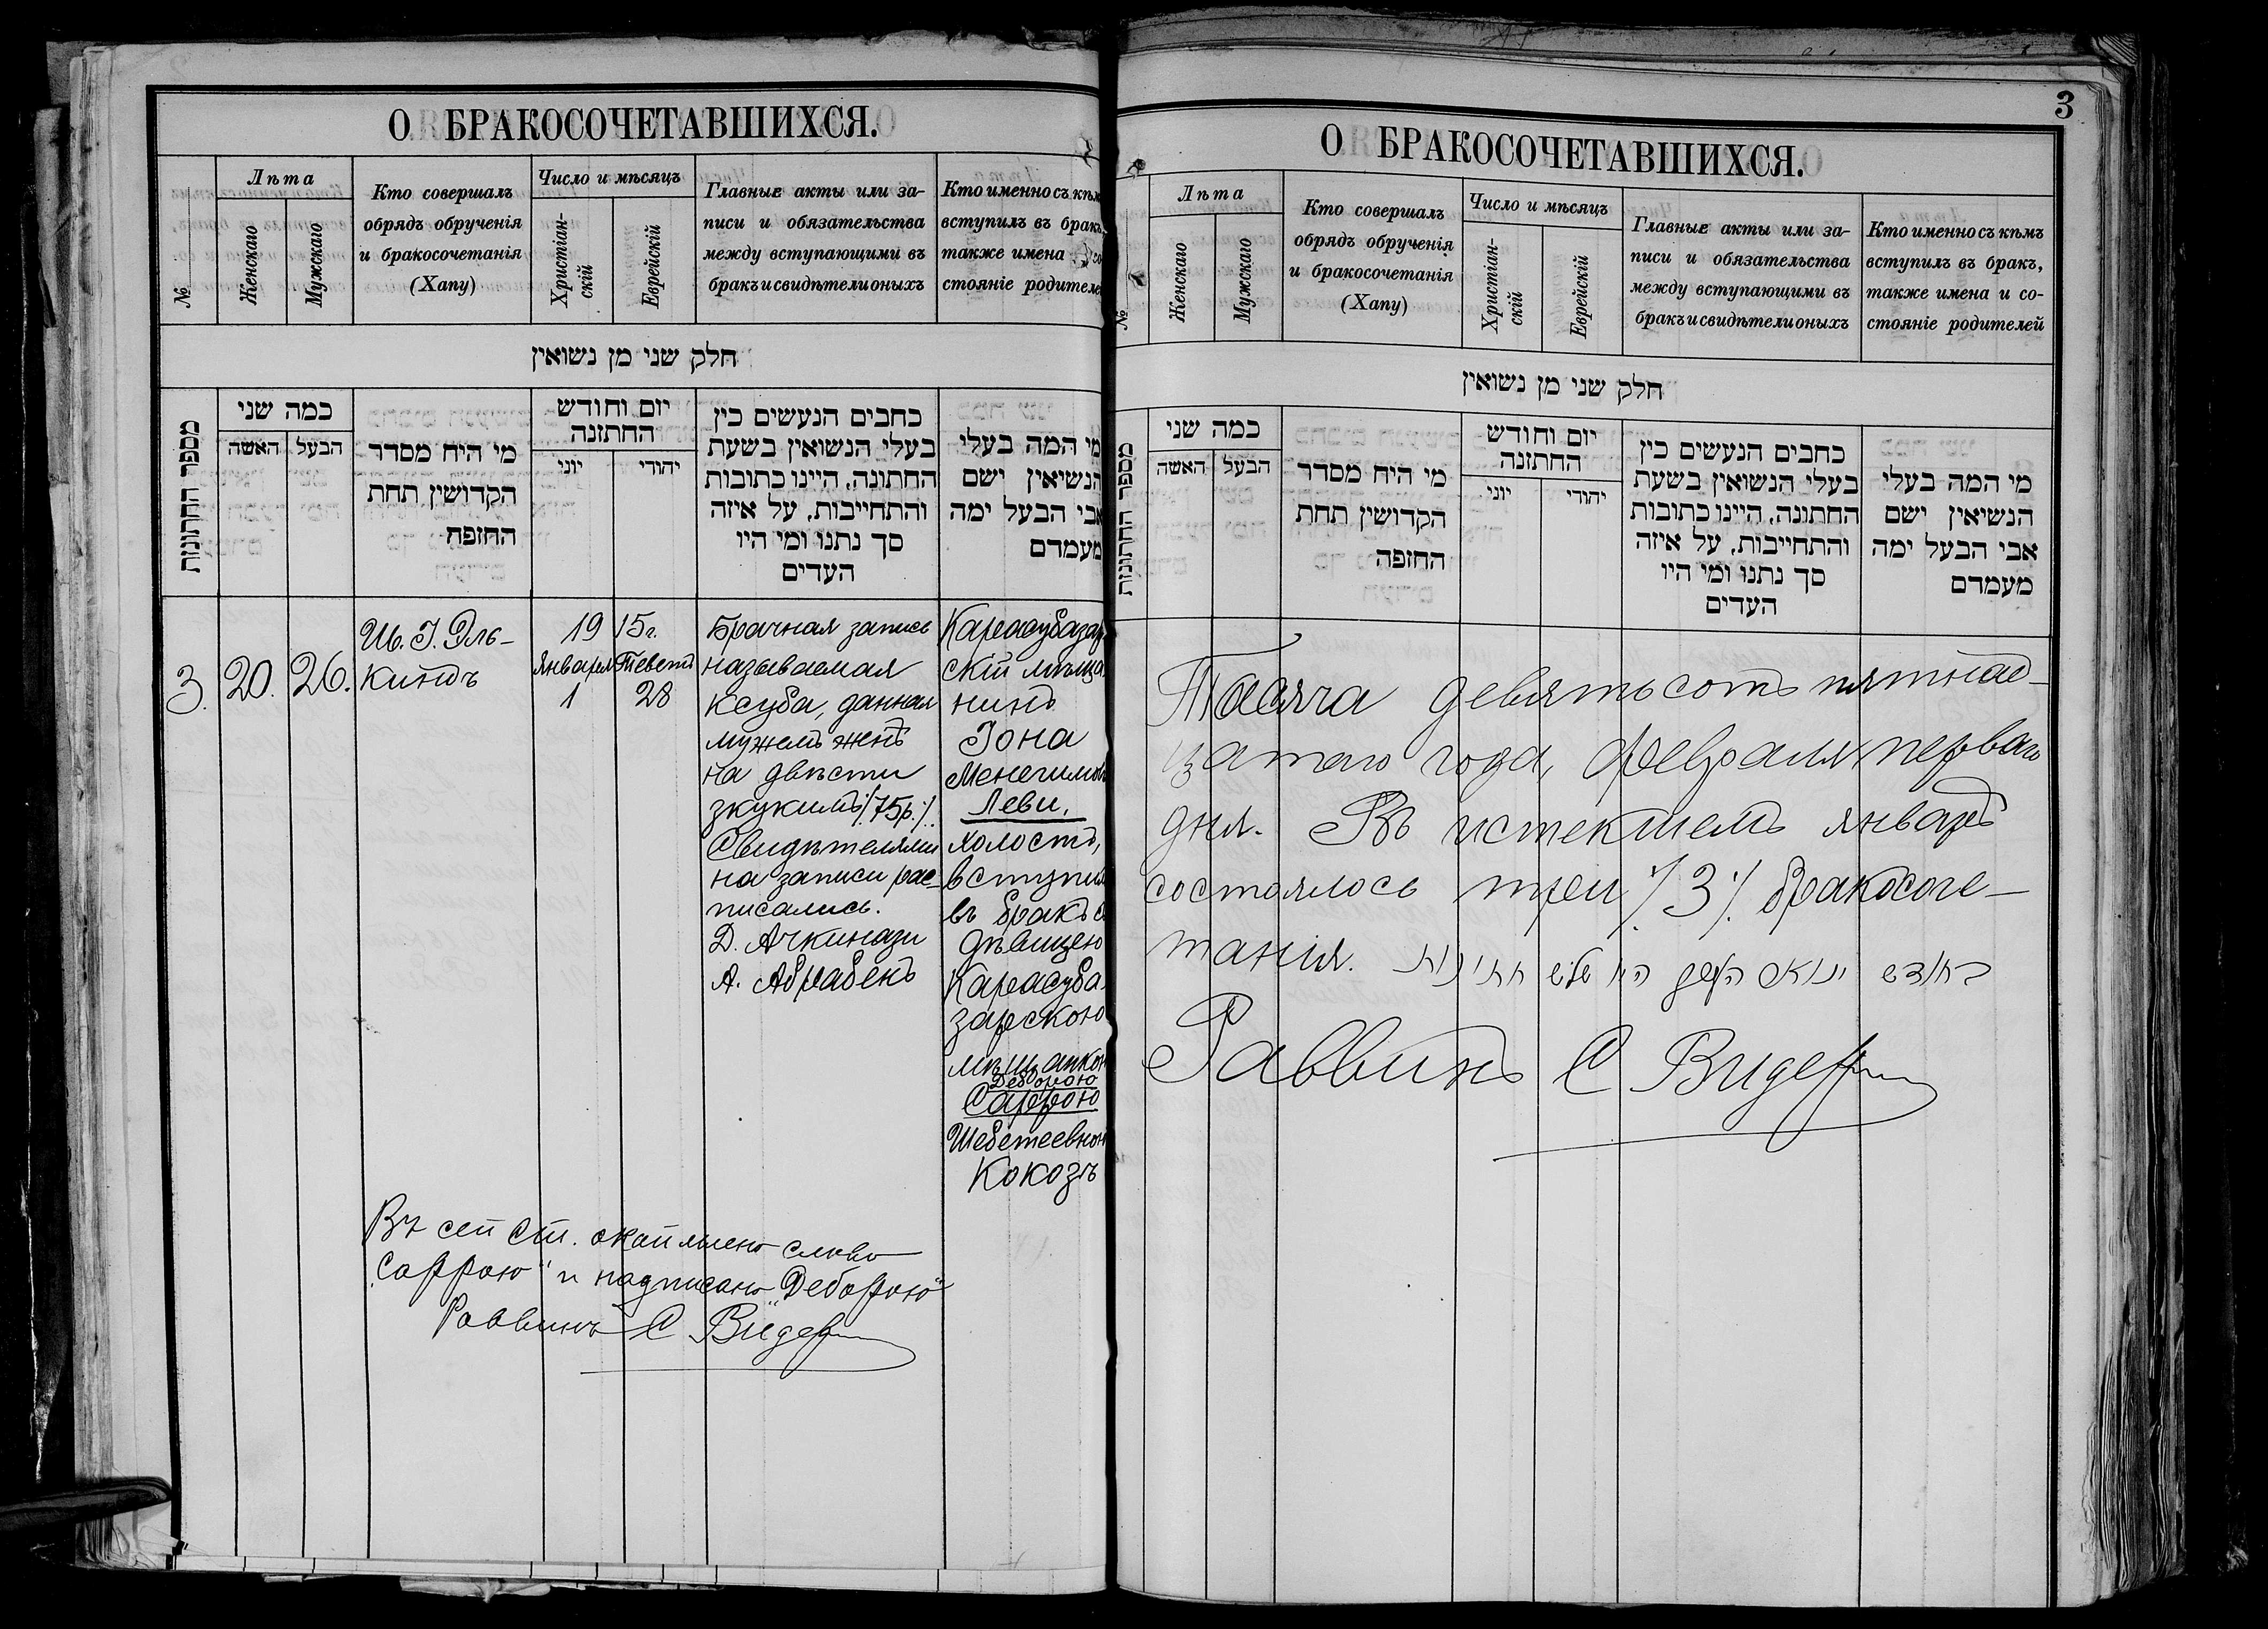 О БРАКОСОЧЕТАВШИХСЯ.
№
Лѣта
Женскаго
Мужскаго
Кто совершалъ
обрядъ обрученія
и бракосочетанія
(Хапу)
Число и мѣсяцъ
Христіан-
скій
Еврейскій
Главные акты или за-
писи и обязательства
между вступающими въ
бракъ и свидѣтели оныхъ
Кто именно съ кѣм
вступилъ въ бракъ,
также имена со-
стояніе родителе
חלק שני מן נשואין
מספר החתונות
כמה שני
האשה
הבעל
מי היח מסדר
הקדושין תחת
החזפח
יום וחודש
החתזנה
יוני
יהודי
כחבים הנעשים כין
בעלי הנשואין בשעת
החתונה, היינו כתובות
והתחייבות, על איזה
סך נתנו ומי היו
העדים
מי המה בעלי
הנשיאין ישם
אבי הבעל ימה
מעמדם
3.
20.
26.
Ш. І. Эль-
киндъ
19 15 г.
Января Теветъ
1 28
Брачная запись
называемая
ксуба, данная
мужемъ женѣ
на двѣсти
зкукимъ /75р./.
Свидѣтелями
на записи рас-
писались.
Д. Ачкинази
А. Абрабенъ
Карасубазар
скій мѣща
нинъ
Іона
Менегимов
Леви,
холостъ,
вступил
въ бракъ с
дѣвицею
Карасуба
зарскою
мѣщанкою
Деборою
Саррою
Шебетеевною
Кокозъ
Въ сей ст. окаймлено слово
„Саррою" и надписано „Деборою"
Раввинъ С Видер
3
О БРАКОСОЧЕТАВШИХСЯ.
№
Лѣта
Женскаго
Мужскаго
Кто совершалъ
обрядъ обрученія
и бракосочетанія
(Хапу)
Число и мѣсяцъ
Христіан-
скій
Еврейскій
Главные акты или за-
писи и обязательства
между вступающими въ
бракъ и свидѣтели оныхъ
Кто именно съ кѣмъ
вступилъ въ бракъ,
также имена и со-
стояніе родителей
חלק שני מן נשואין
מספר החתונות
כמה שני
האשה
הבעל
מי היח מסדר
הקדושין תחת
החזפה
יום וחודש
החתזנה
יוני
יהודי
כחבים הנעשים כין
בעלי הנשואין בשעת
החתונה, היינו כתובות
והתחייבות, על איזה
סך נתנו ומי היו
העדים
מי המה בעלי
הנשיאין ישם
אבי הבעל ימה
מעמדם
Тысяча девятьсотъ пятнад-
цатаго года, февраля перваго
дня. Въ истекшемъ январѣ
состоялось три /3/. бракосоче-
танія. בחודש היו שלש חתונות
Раввинъ С Видер